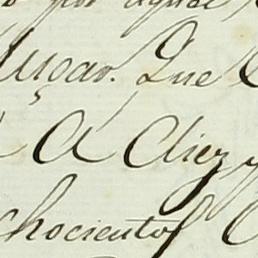 por aquel
lugar. Que
A Diez y
chocientos